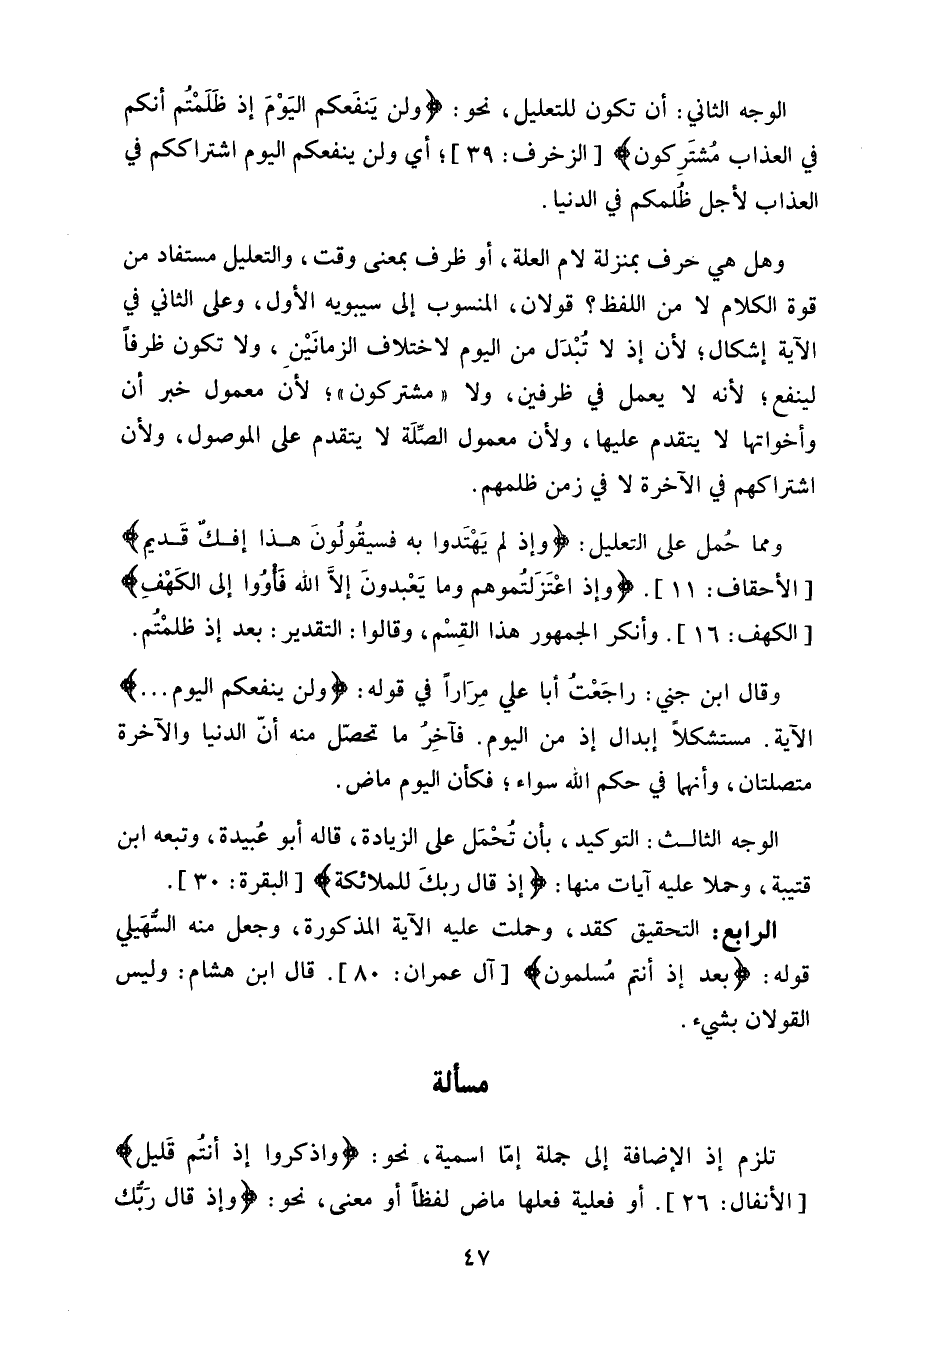 الوجه الثاني: أن تكون للتعليل، نحو: ﴿ولن يَنفَعكم اليَوْمَ إذ ظَلَمْتُم أنكم
في العذاب مُشتَرِكون﴾ [الزخرف: ٣٩]؛ أي ولن ينفعكم اليوم اشتراككم في
العذاب لأجل ظُلمكم في الدنيا.
وهل هي حرف بمنزلة لام العلة، أو ظرف بمعنى وقت، والتعليل مستفاد من
قوة الكلام لا من اللفظ؟ قولان، المنسوب إلى سيبويه الأول، وعلى الثاني في
الآية إشكال؛ لأن إذ لا تُبْدَل من اليوم لاختلاف الزمانَيْنِ، ولا تكون ظرفاً
لينفع؛ لأنه لا يعمل في ظرفين، ولا «مشتركون»؛ لأن معمول خبر أن
وأخواتها لا يتقدم عليها، ولأن معمول الصِّلَة لا يتقدم على الموصول، ولأن
اشتراكهم في الآخرة لا في زمن ظلمهم.
ومما حُمل على التعليل: ﴿وإذ لم يَهْتَدوا به فسيقُولُونَ هـذا إفـكٌ قَـديم﴾
[الأحقاف: ١١]. ﴿وإذ اعْتَزَلتُموهم وما يَعْبدونَ إلاَّ الله فَأْوُوا إلى الكَهْفِ﴾
[الكهف: ١٦]. وأنكر الجمهور هذا القِسْم، وقالوا: التقدير: بعد إذ ظلمْتُم.
وقال ابن جني: راجَعْتُ أبا علي مِرَاراً في قوله: ﴿ولن ينفعكم اليوم...﴾
الآية. مستشكلاً إبدال إذ من اليوم. فآخِرُ ما تحصّل منه أنّ الدنيا والآخرة
متصلتان، وأنهما في حكم الله سواء؛ فكأن اليوم ماض.
الوجه الثالـث: التوكيد، بأن تُحْمَل على الزيادة، قاله أبو عُبيدة، وتبعه ابن
قتيبة، وحملا عليه آيات منها: ﴿إذ قال ربكَ للملائكة﴾ [البقرة: ٣٠].
الرابع: التحقيق كقد، وحملت عليه الآية المذكورة، وجعل منه السُّهَيلي
قوله: ﴿بعد إذ أنتم مُسلمون﴾ [آل عمران: ٨٠]. قال ابن هشام: وليس
القولان بشيء.
مسألة
تلزم إذ الإضافة إلى جملة إمّا اسمية، نحو: ﴿واذكروا إذ أنتُم قَليل﴾
[الأنفال: ٢٦]. أو فعلية فعلها ماض لفظاً أو معنى، نحو: ﴿وإذ قال رَبُّك
٤٧